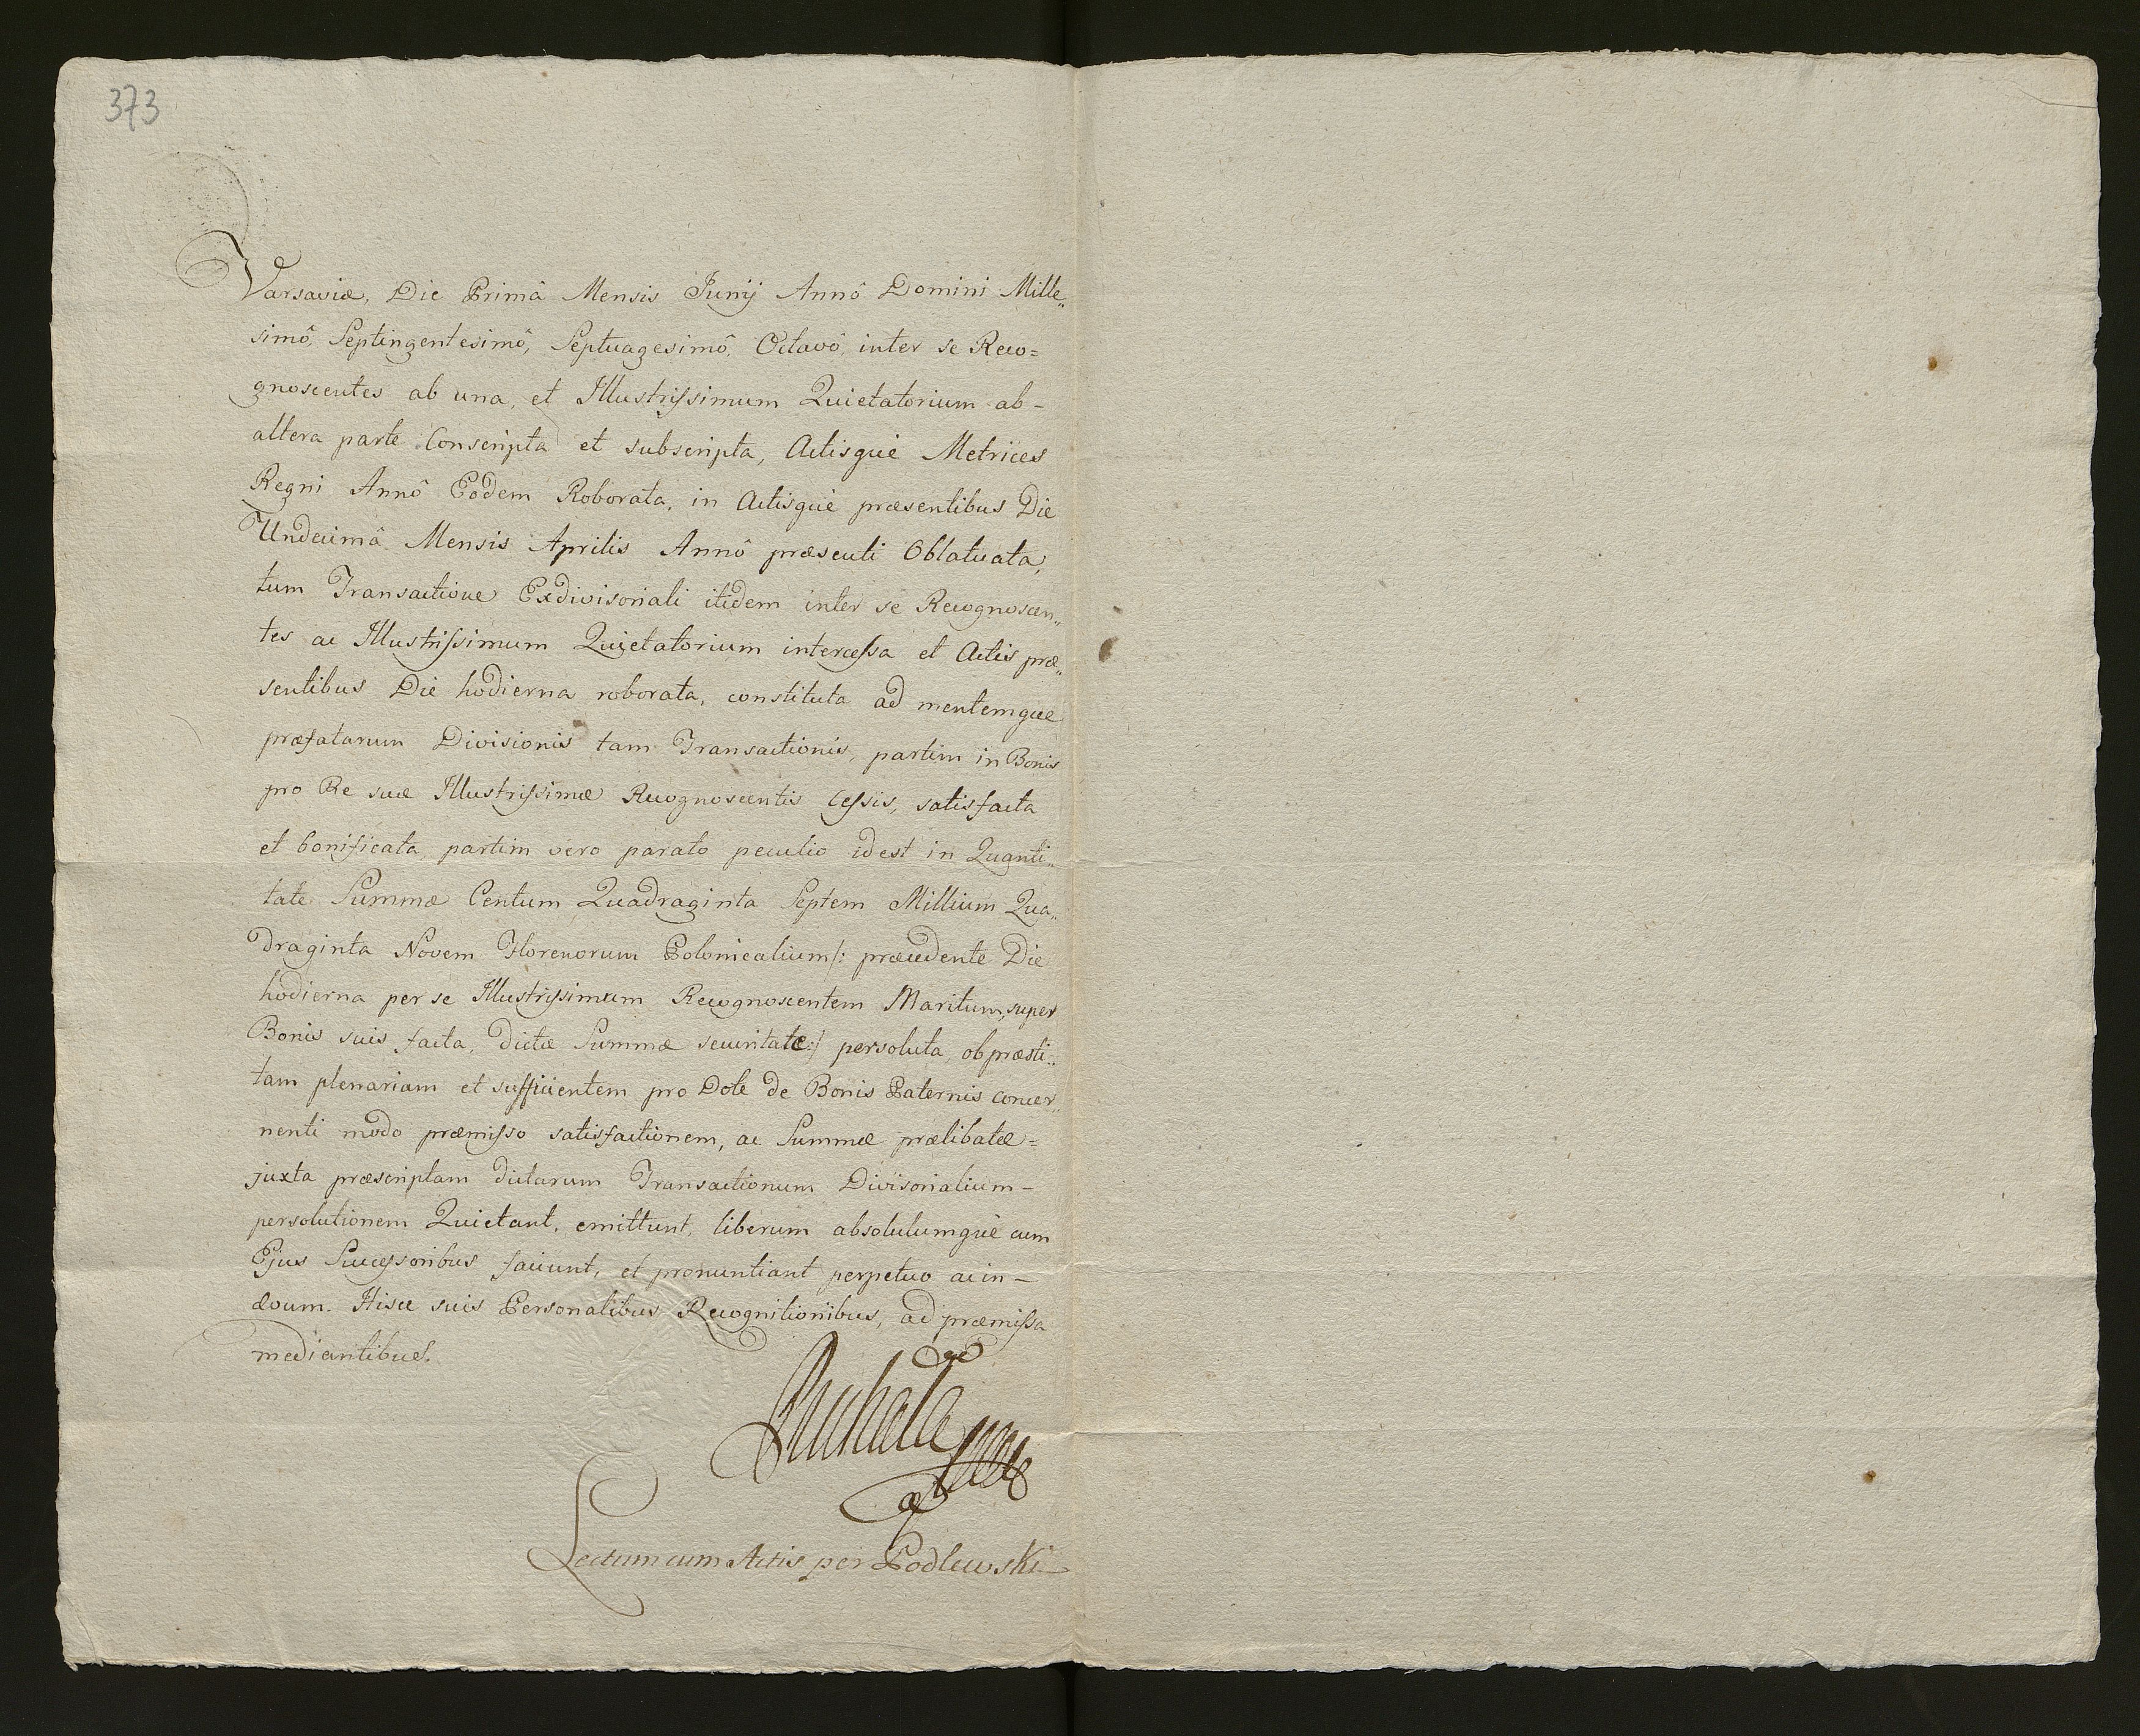 373
Varsaviæ, Die Primâ Mensis Junij Annô Domini Mille„
simô, Septingentesimô, Septuagesimô, Octavô, inter se Reco=
gnoscentes ab una, et Illustrissimum Quietatorium ab-
altera parte Conscripta et subscripta, Actisque Metrices
Regni Annô Eodem Roborata, in Actisque præsentibus Die
Undecimâ Mensis Aprilis Annô præsenti Oblatuata,
tum Transactione Exdivisoriali itidem inter se Recognoscen„
tes ac Illustrissimum Quietatorium intercessa et Actis præ„
sentibus Die hodierna roborata, constituta ad mentemque
præfatarum Divisionis tam Transactionis, partim in Bonis
pro Re suæ Illustrissimæ Recognoscentis Cessis, satisfacta
et bonificata, partim vero parato peculio idest in Quanti„
tate Summæ Centum Quadraginta Septem Millium Qua„
draginta Novem Florenorum Polonicalium/: præcedente Die
hodierna per se Illustrissimum Recognoscentem Maritum, super
Bonis suis facta, dictæ Summæ securitate:/ persoluta, ob præsti„
tam plenariam et sufficientem pro Dote de Bonis Paternis concer„
nenti modo præmisso satisfactionem, ac Summæ prælibatæ=
juxta præscriptam dictarum Transactionum Divisorialium-
persolutionem Quietant, emittunt, liberum absolutumque cum
Ejus Successoribus faciunt, et pronuntiant perpetuo ac in-
ævum. Hisce suis Personalibus Recognitionibus, ad præmissa
mediantibus.
Lectum cum Actis per Podlewski